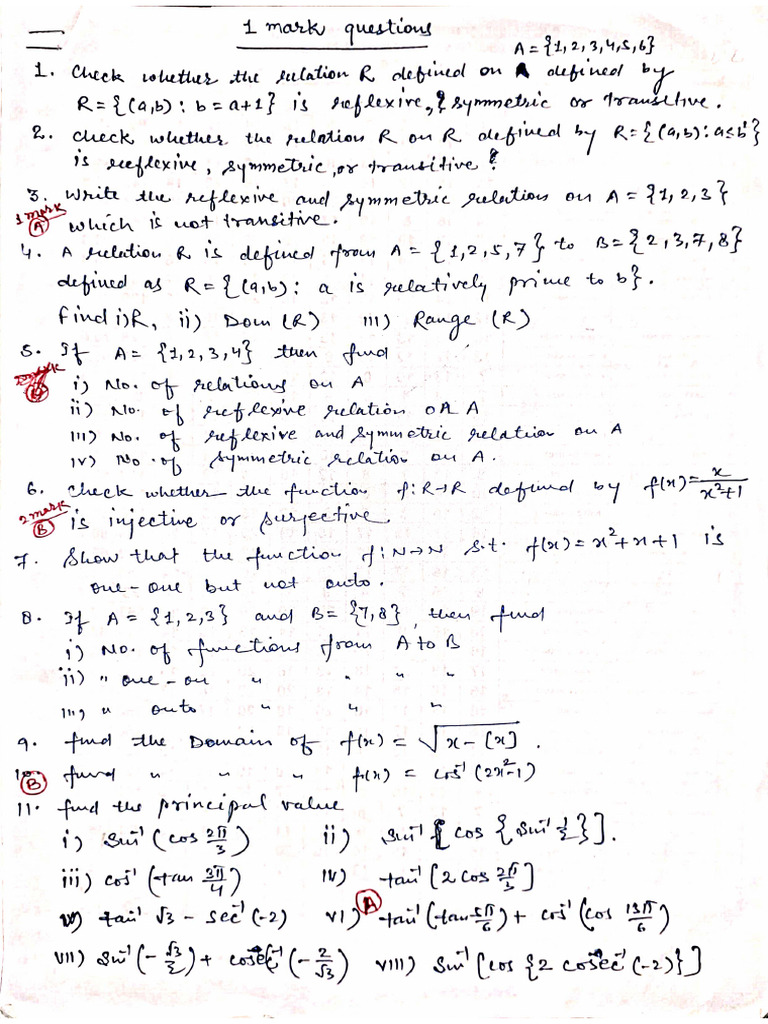 1 mark questions
A = {1,2,3,4,5,6}
1. Check whether the relation R defined on A defined by
R = {(a,b) : b = a+1} is reflexive, symmetric or transitive.
2. Check whether the relation R on R defined by R = {(a,b) : a≤b}
is reflexive, symmetric, or transitive?
3. Write the reflexive and symmetric relation on A = {1,2,3}
1 mark
(A) which is not transitive.
4. A relation R is defined from A = {1,2,5,7} to B = {2,3,7,8}
defined as R = {(a,b) : a is relatively prime to b}.
Find i) R, ii) Dom (R) iii) Range (R)
5. If A = {1,2,3,4} then find
i) No. of relations on A
ii) No. of reflexive relation on A
iii) No. of reflexive and symmetric relation on A
iv) No. of symmetric relation on A.
6. Check whether the function f: R→R defined by f(x) = x/(x²+1)
2 mark
(B) is injective or surjective.
7. Show that the function f: N→N s.t. f(x) = x²+x+1 is
one-one but not onto.
8. If A = {1,2,3} and B = {7,8}, then find
i) No. of functions from A to B
ii) " one-on " " " "
iii) " onto " " "
9. find the Domain of f(x) = √(x-[x]).
10. find " " " f(x) = cos⁻¹(2x²-1)
(B)
11. find the principal value
i) sin⁻¹(cos 2π/3) ii) sin⁻¹[cos{sin⁻¹ 1/2}].
iii) cos⁻¹(tan 3π/4) iv) tan⁻¹[2cos 2π/3]
(A)
v) tan⁻¹ √3 - sec⁻¹(-2) vi) tan⁻¹(tan 5π/6) + cos⁻¹(cos 13π/6)
vii) sin⁻¹(-√3/2) + cosec⁻¹(-2/√3) viii) sin⁻¹[cos{2 cosec⁻¹(-2)}]